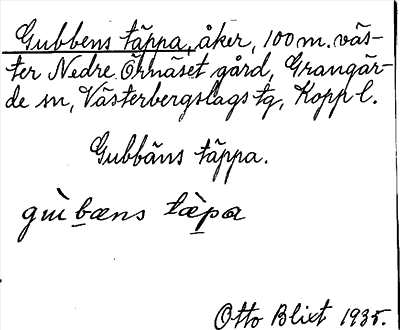 Gubbens täppa, åker, 100 m. väs-
ter Nedre Örnäset gård, Grangär-
de sn, Västerbergslags tg, Kopp l.
Gubbäns täppa.
Otto Blixt 1935.